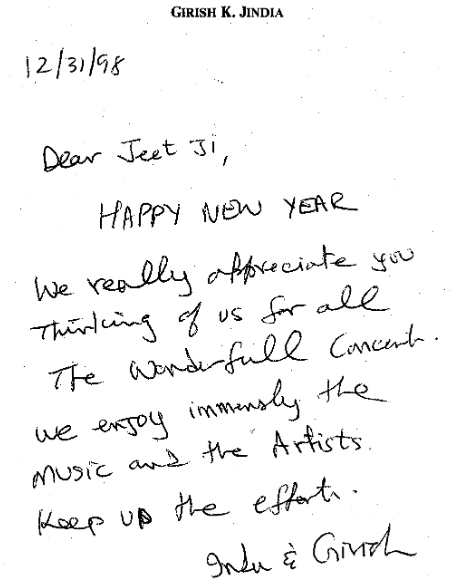 GIRISH K. JINDIA
12/31/98
Dear Jeet Ji,
HAPPY NEW YEAR
We really appreciate you
Thinking of us for all
The Wonderfull Concerts.
We enjoy immensly the
Music and the Artists.
Keep up the efforts.
Indu & Girish